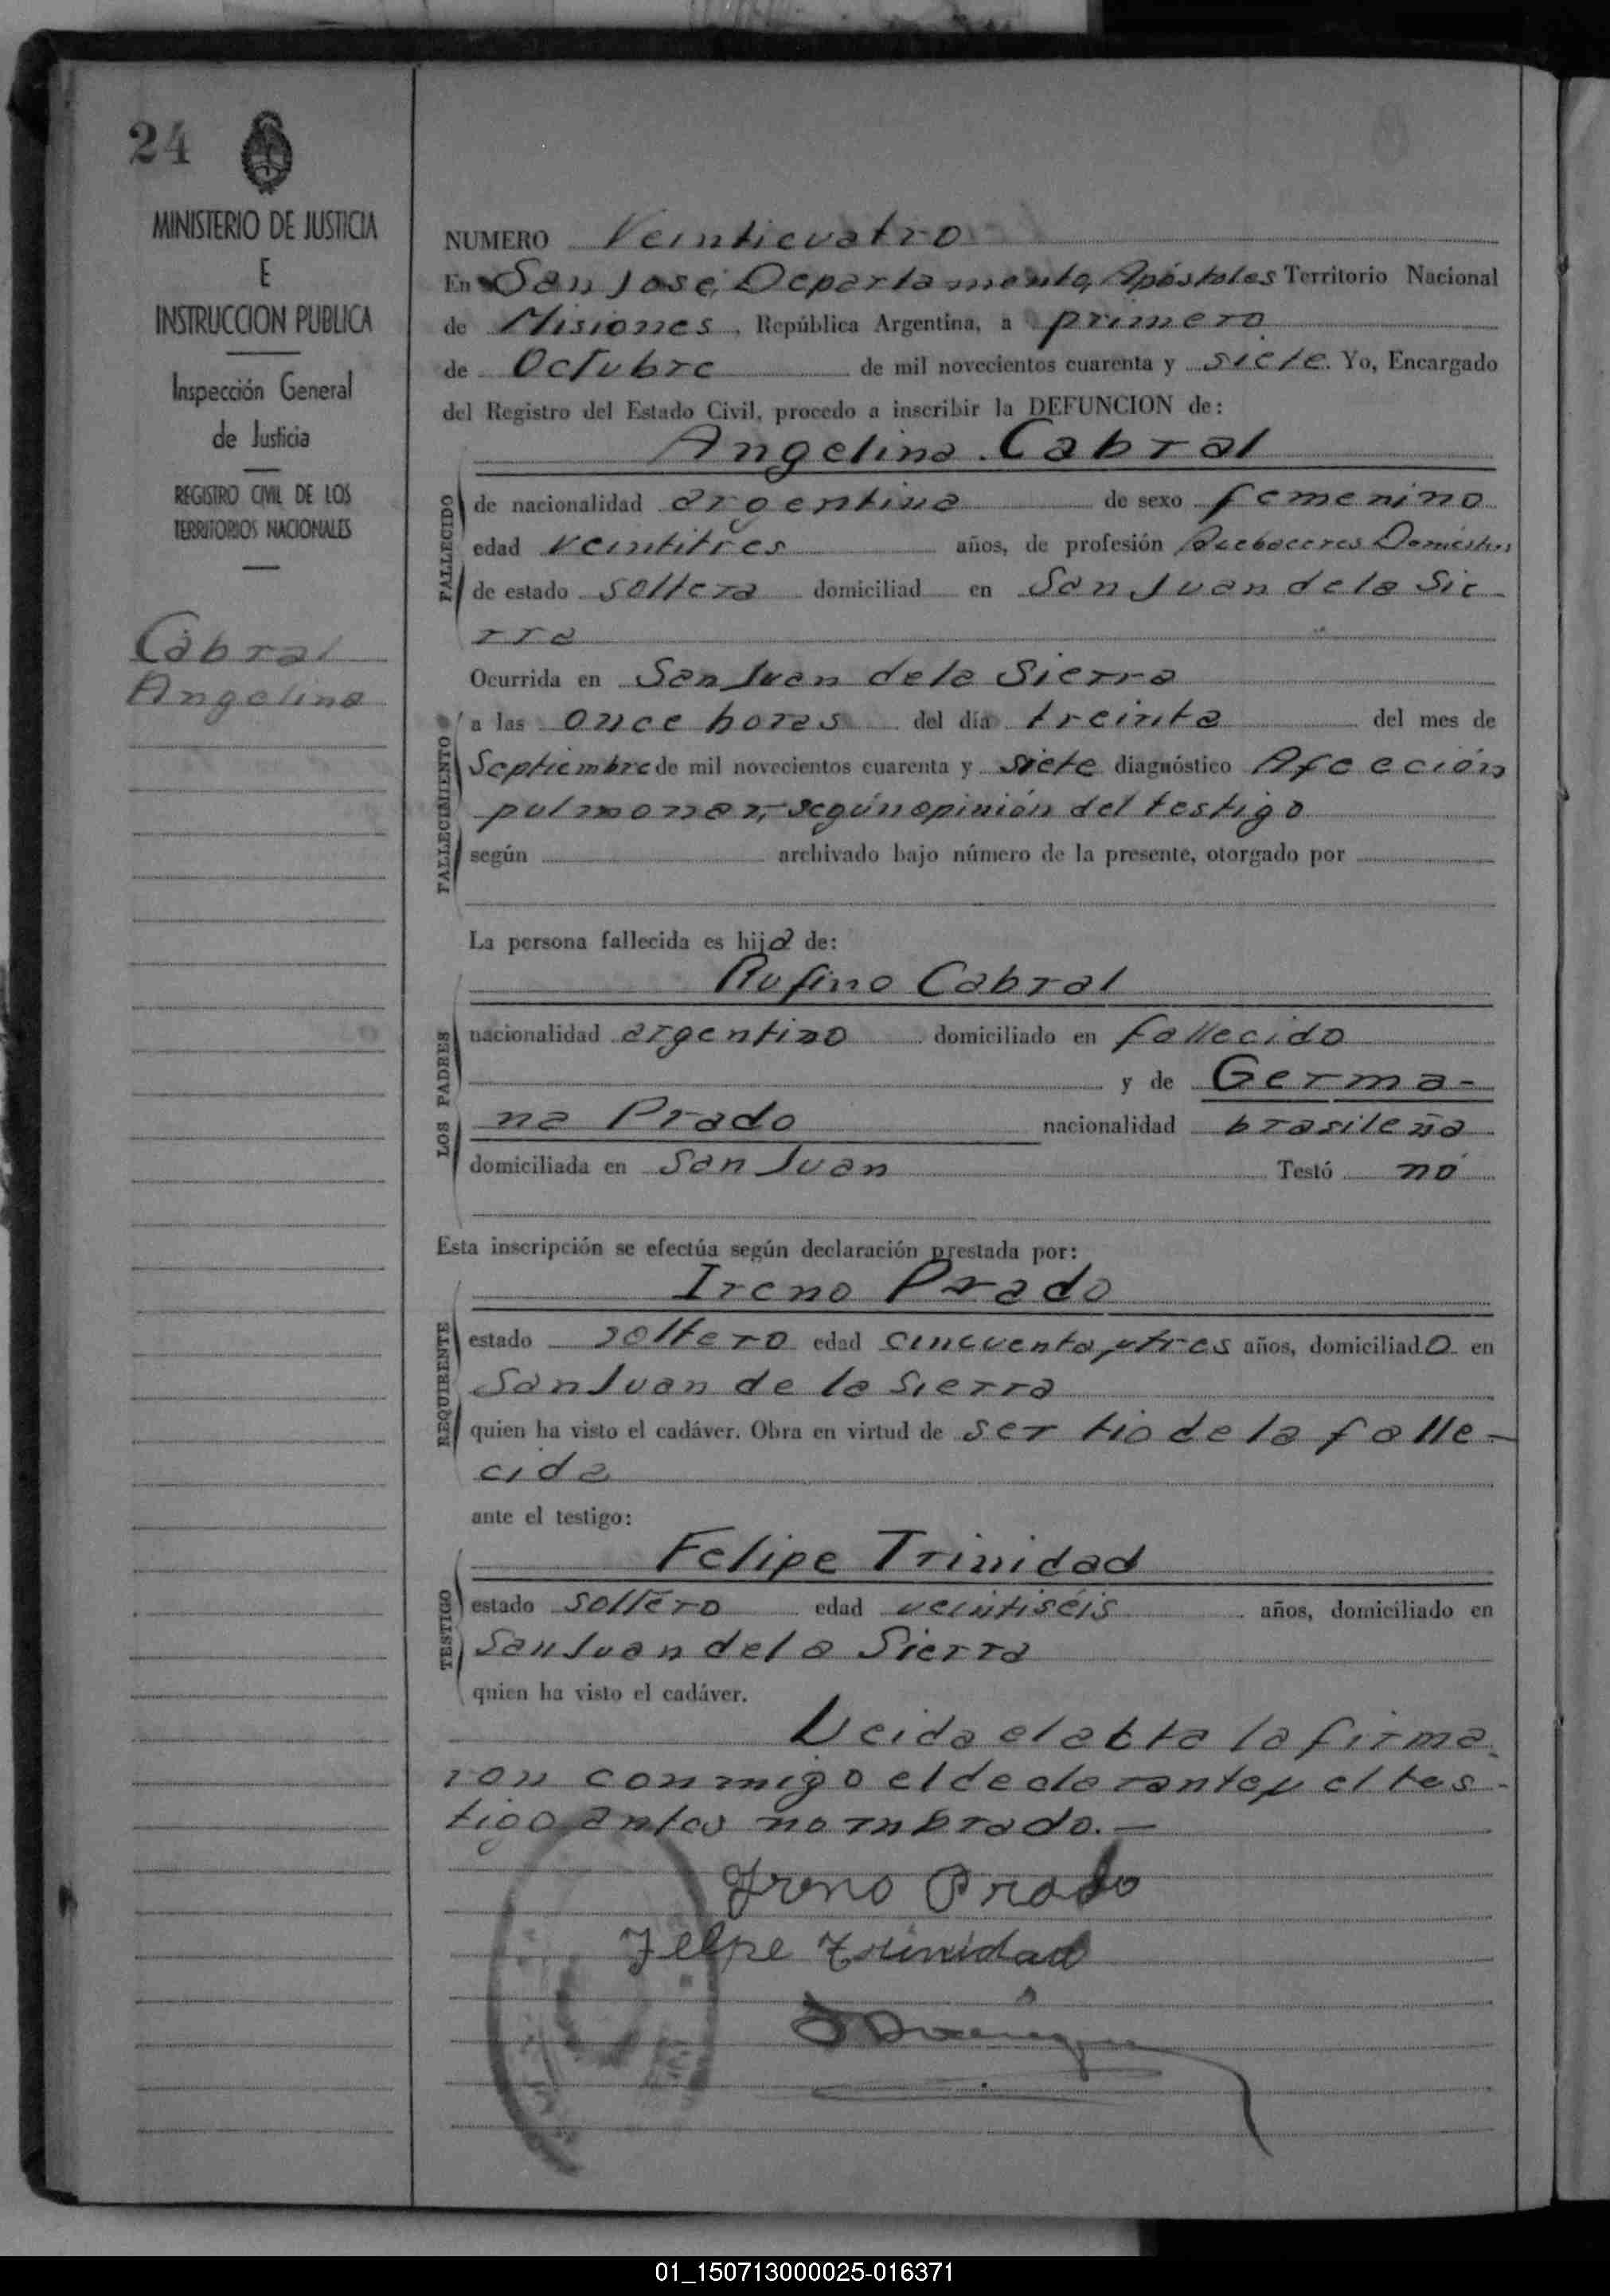 24
MINISTERIO DE JUSTICIA
E
INSTRUCCION PUBLICA
Inspección General
de Justicia
REGISTRO CIVIL DE LOS
TERRITORIOS NACIONALES
Cabral
Angelina
NUMERO Veinticuatro
En San José, Departamento Apóstoles Territorio Nacional
de Misiones, República Argentina, a primero
de Octubre de mil novecientos cuarenta y siete. Yo, Encargado
del Registro del Estado Civil, procedo a inscribir la DEFUNCION de:
Angelina Cabral
FALLECIDO
de nacionalidad argentina de sexo femenino
edad veintitres años, de profesión Quehaceres Domésticos
de estado soltera domiciliad en San Juan de la Sie-
rra
Ocurrida en San Juan de la Sierra
FALLECIMIENTO
a las once horas del día treinta del mes de
Septiembre de mil novecientos cuarenta y siete diagnóstico Afección
pulmonar, según opinión del testigo
según archivado bajo número de la presente, otorgado por
La persona fallecida es hija de:
Rufino Cabral
LOS PADRES
nacionalidad argentino domiciliado en fallecido
y de Germa-
na Prado nacionalidad brasileña
domiciliada en San Juan Testó nó
Esta inscripción se efectúa según declaración prestada por:
Ireno Prado
REQUIRENTE
estado soltero edad cincuenta y tres años, domiciliado en
San Juan de la Sierra
quien ha visto el cadáver. Obra en virtud de ser tio de la falle-
cida
ante el testigo:
Felipe Trinidad
TESTIGO
estado soltero edad veintiséis años, domiciliado en
San Juan de la Sierra
quien ha visto el cadáver.
Leida el acta la firma-
ron conmigo el declarante y el tes-
tigo antes nombrado.—
Ireno Prado
Felipe Trinidad
01_150713000025-016371